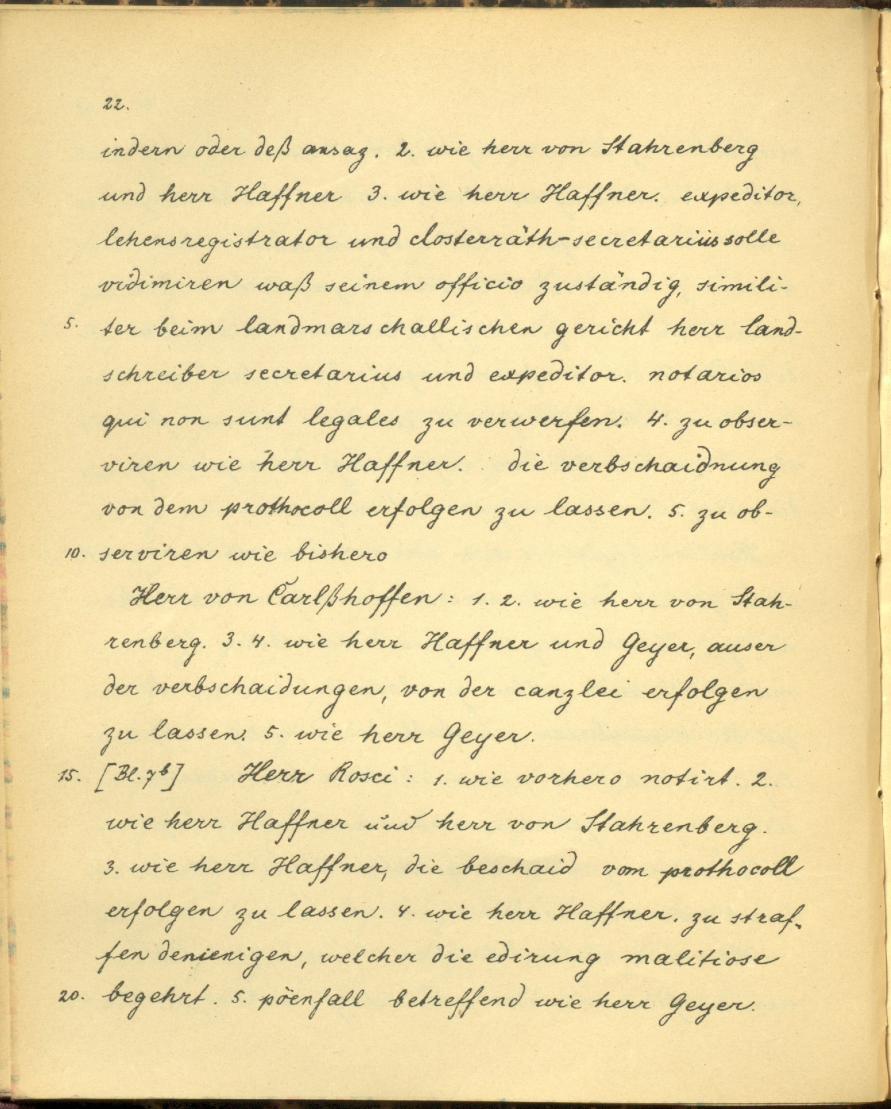 22.
indern oder deß ansag. 2. wie herr von Stahrenberg
und herr Haffner 3. wie herr Haffner. expeditor,
lehensregistrator und closterräth-secretariüs solle
vidimiren waß seinem officio zuständig, simili-
5. ter beim landmarschallischen gericht herr land-
schreiber secretarius und expeditor. notarios
qui non sunt legales zu verwerfen. 4. zu obser-
viren wie herr Haffner. die verbschaidnung
von dem prothocoll erfolgen zu lassen. 5. zu ob-
10. serviren wie bishero
Herr von Carlßhoffen: 1. 2. wie herr von Stah-
renberg. 3. 4. wie herr Haffner und Geyer, auser
der verbschaidungen, von der canzlei erfolgen
zu lassen. 5. wie herr Geyer.
15. [Bl. 7b] Herr Rosci: 1. wie vorhero notirt. 2.
wie herr Haffner und herr von Stahrenberg.
3. wie herr Haffner, die beschaid vom prothocoll
erfolgen zu lassen. 4. wie herr Haffner. zu straf-
fen denienigen, welcher die edirung malitiose
20. begehrt. 5. pöenfall betreffend wie herr Geyer.